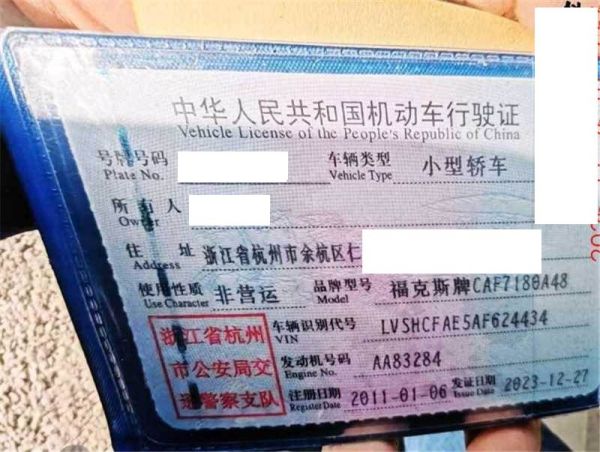 中华人民共和国机动车行驶证
Vehicle License of the People's Republic of China
号牌号码 车辆类型 小型轿车
Plate No. Vehicle Type
所有人
Owner
住址 浙江省杭州市余杭区仁
Address
使用性质 非营运 品牌型号 福克斯牌CAF7180A48
Use Character Model
浙江省杭州
市公安局交
通警察支队
车辆识别代号 LVSHCFAE5AF624434
VIN
发动机号码 AA83284
Engine No.
注册日期 2011-01-06 发证日期 2023-12-27
Register Date Issue Date